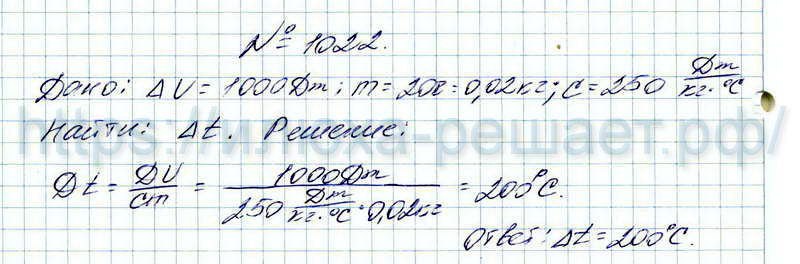 № 1022.
Дано: ΔU = 1000Дж; m = 20г = 0,02кг; c = 250 Дж/кг·°C
Найти: Δt. Решение:
Dt = DU/cm = 1000Дж/250 Дж/кг·°C · 0,02кг = 200°C.
Ответ: Δt = 200°C.